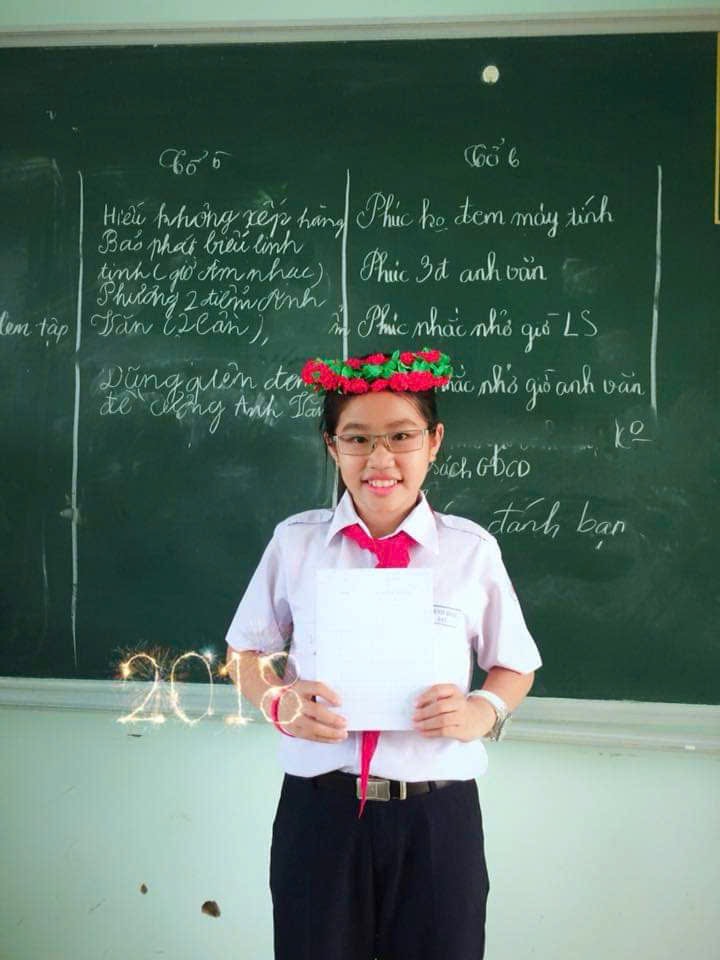 Tổ 5
Hiếu không xếp hàng
Bảo phát biểu linh
tinh (giờ Âm nhạc)
Phương 2 điểm Anh
Văn (2 lần),
Dũng quên đem
đề cương Anh Văn
Tổ 6
Phúc ko đem máy tính
Phúc 3đ anh văn
Phúc nhắc nhở giờ LS
nhắc nhở giờ anh văn
ko
sách GDCD
đánh bạn
tập
2018